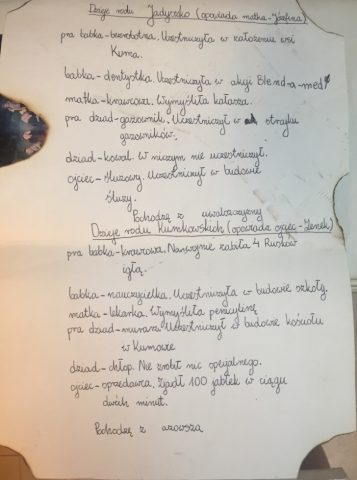 Dzieje rodu Jadyczko (opowiada matka-Józefina)
pra babka-bezrobotna. Uczestniczyła w założeniu wsi
Kuma.
babka-dentystka. Uczestniczyła w akcji Blend-a-med
matka-krawcowa. Wymyśliła kałasza.
pra dziad-gazownik. Uczestniczył w strajku
gazowników.
dziad-kowal. W niczym nie uczestniczył.
ojciec-śluzowy. Uczestniczył w budowie
śluzy.
Pochodzę z
Dzieje rodu Kumkowskich (opowiada ojciec-Zenek)
pra babka-krawcowa. Na wojnie zabiła 4 Rusków
igłą.
babka-nauczycielka. Uczestniczyła w budowie szkoły.
matka-lekarka. Wymyśliła penicylinę
pra dziad-murarz. Uczestniczył w budowie kościołu
w Kumowie
dziad-chłop. Nie zrobił nic specjalnego.
ojciec-sprzedawca. Zjadł 100 jabłek w ciągu
dwóch minut.
Pochodzę z